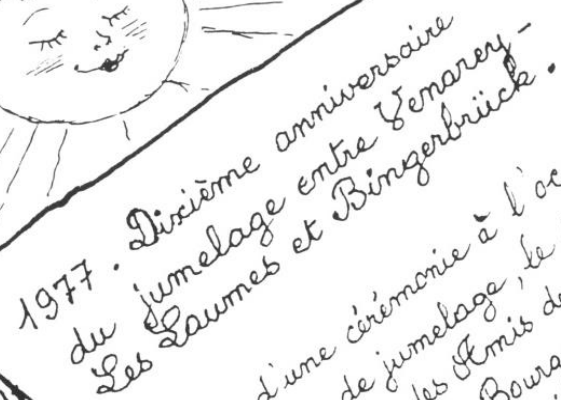 1977. Dixième anniversaire
du jumelage entre Venarey-
Les Laumes et Bingerbrück.
d'une cérémonie à l'oc
de jumelage, le
les Amis de
Bourg